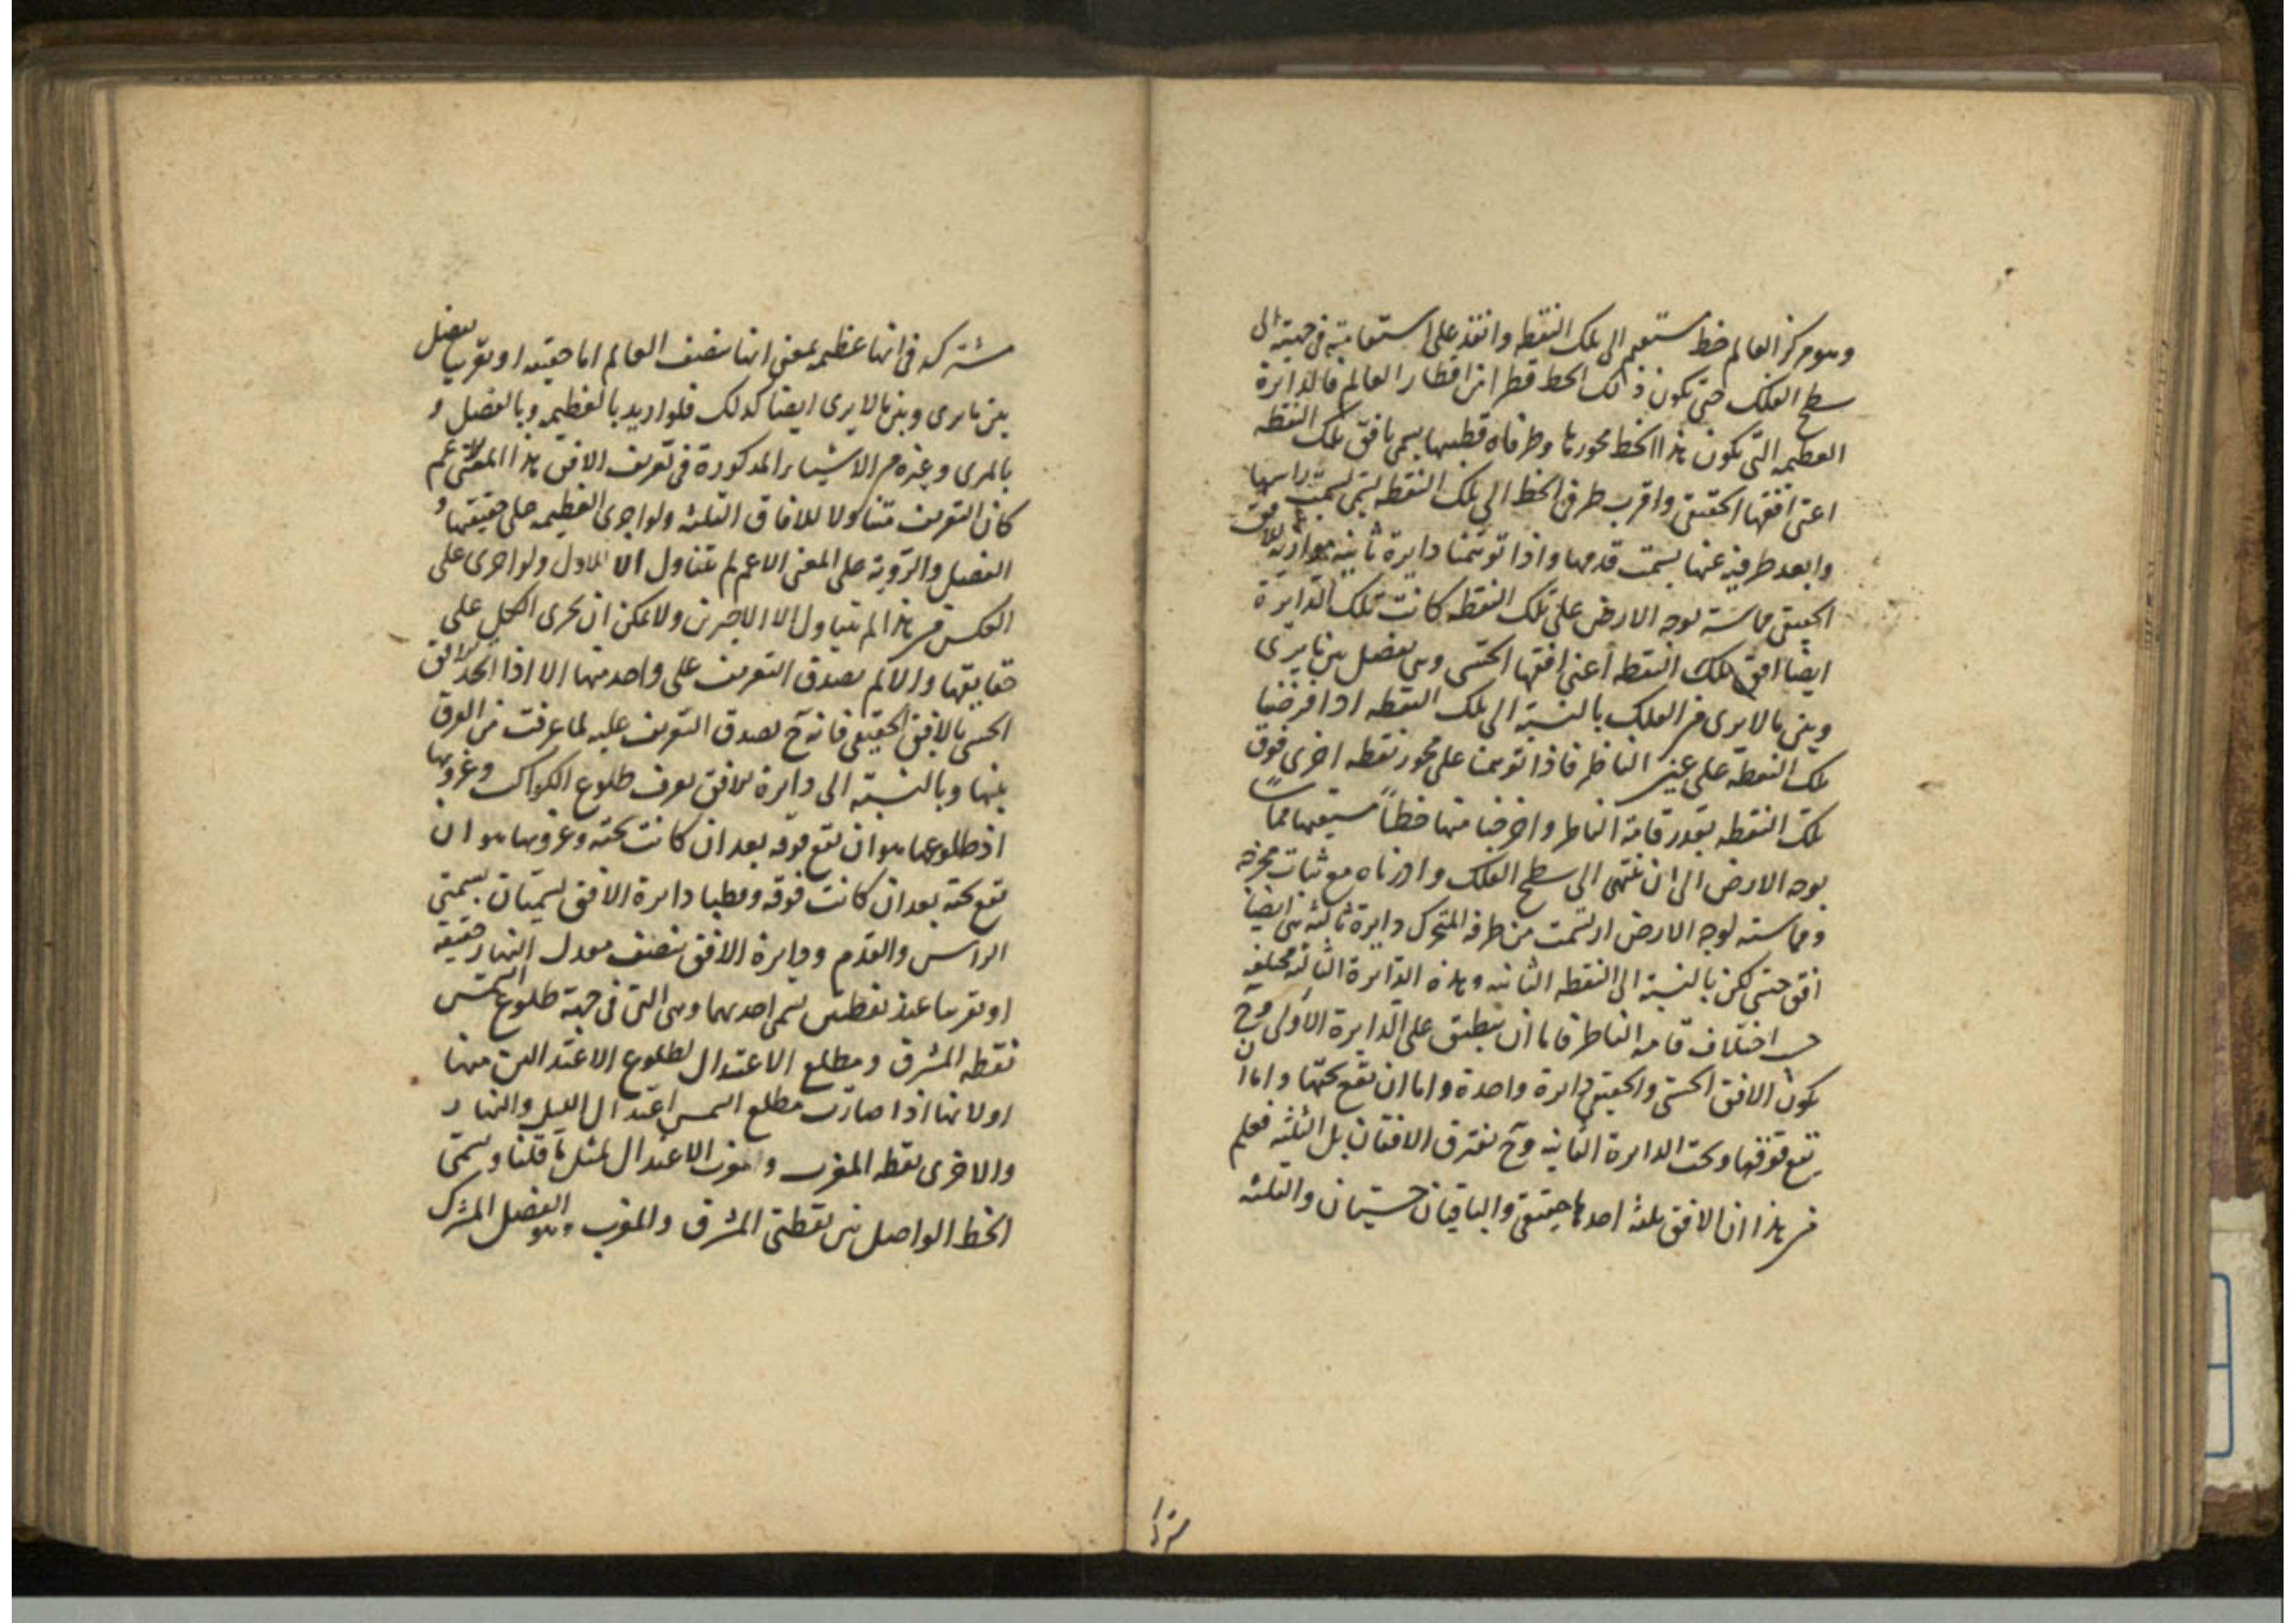 وهو مركز العالم خط مستقيم الى تلك النقطه وانفذ على استقامته في جهتيه الى
سطح الفلك حتى يكون ذلك الخط قطرا من اقطار العالم فالدايرة
العظيمه التى يكون هذا الخط محورها وطرفاه قطبيها يسمى بافق تلك النقطه
اعنى افقها الحقيقى واقرب طرفى الخط الى تلك النقطه يسمى بسمت راسها
وابعد طرفيه عنها بسمت قدمها واذا توهمنا دايرة ثانيه موازية للافق
الحقيقى مماسة لوجه الارض على تلك النقطه كانت تلك الدايرة
ايضا افق تلك النقطه أعنى افقها الحسى وهى تفصل بين ما يرى
وبين ما لا يرى من الفلك بالنسبة الى تلك النقطه اذا فرضنا
تلك النقطة على عين الناظر فاذا توهمنا على محور نقطه اخرى فوق
تلك النقطه بقدر قامة الناظر واخرجنا منها خطاً مستقيما مماسا
لوجه الارض الى ان ينتهى الى سطح الفلك وادرناه مع ثبات مخرجه
ومماسته لوجه الارض ارتسمت من طرفه المتحرك دايرة ثالثه هى ايضا
افق حسى لكن بالنسبة الى النقطه الثانيه وهذه الدايرة الثالثه مختلفه
حسب اختلاف قامه الناظر فاما ان ينطبق على الدايرة الاولى وح
يكون الافق الحسى والحقيقى دايرة واحدة واما ان تقع تحتها واما ان
يقع فوقها وتحت الدايرة الثانيه وح يفترق الافقان بل الثلثه فعلم
من هذا ان الافق ثلثه احدها حقيقى والباقيان حسيان والثلثه
هذا
مشتركه فى انها عظيمه بمعنى انها تنصف العالم اما حقيقه او تقريبا تفصل
بين ما يرى وبين ما لا يرى ايضا كذلك فلو اريد بالعظيمه وبالفصل و
بالمرى وغيره من الاشياء المذكورة فى تعريف الافق هذا المعنى الاعم
كان التعريف متناولا للافاق الثلثه ولو اجرى العظيمه على حقيقتها و
الفصل والرؤية على المعنى الاعم لم يتناول الا الاول ولو اجرى على
العكس من هذا لم يتناول الا الاخيرين ولا يمكن ان يجرى الكل على
حقايقها والا لم يصدق التعريف على واحد منها الا اذا اتحد الافق
الحسى بالافق الحقيقى فانه ح يصدق التعريف عليه لما عرفت من الفرق
بينها وبالنسبة الى دايرة الافق يعرف طلوع الكواكب وغروبها
اذ طلوعها هو ان تقع فوقه بعد ان كانت تحته وغروبها هو ان
تقع تحته بعد ان كانت فوقه وقطبا دايرة الافق يسميان بسمتى
الراس والقدم ودايرة الافق تنصف معدل النهار حقيقه
او تقريبا عند نقطتين يسمى احديهما وهى التى فى جهة طلوع الشمس
نقطه المشرق ومطلع الاعتدال لطلوع الاعتدالين منها
اولانها اذا صارت مطلع الشمس اعتدال الليل والنهار
والاخرى نقطه المغرب ومغرب الاعتدال لمثل ما قلنا ويسمى
الخط الواصل بين نقطتى المشرق والمغرب وهو الفصل المشترك